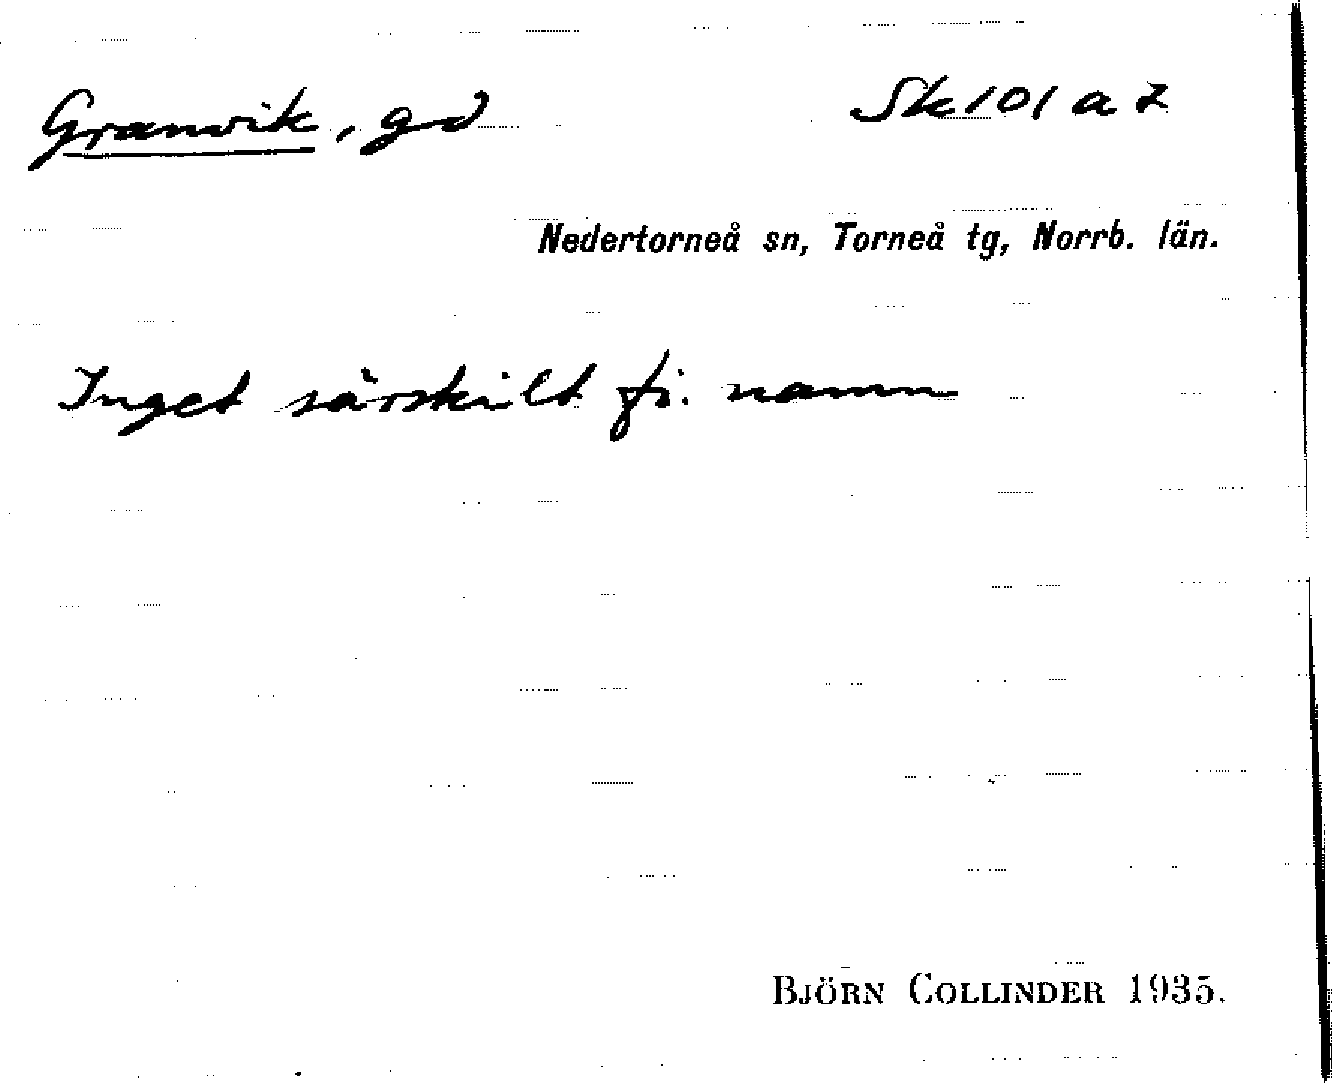 Granvik, gd Sk 101 a z
Nedertorneå sn, Torneå tg, Norrb. län.
Inget särskilt fi. namn
BJÖRN COLLINDER 1935.